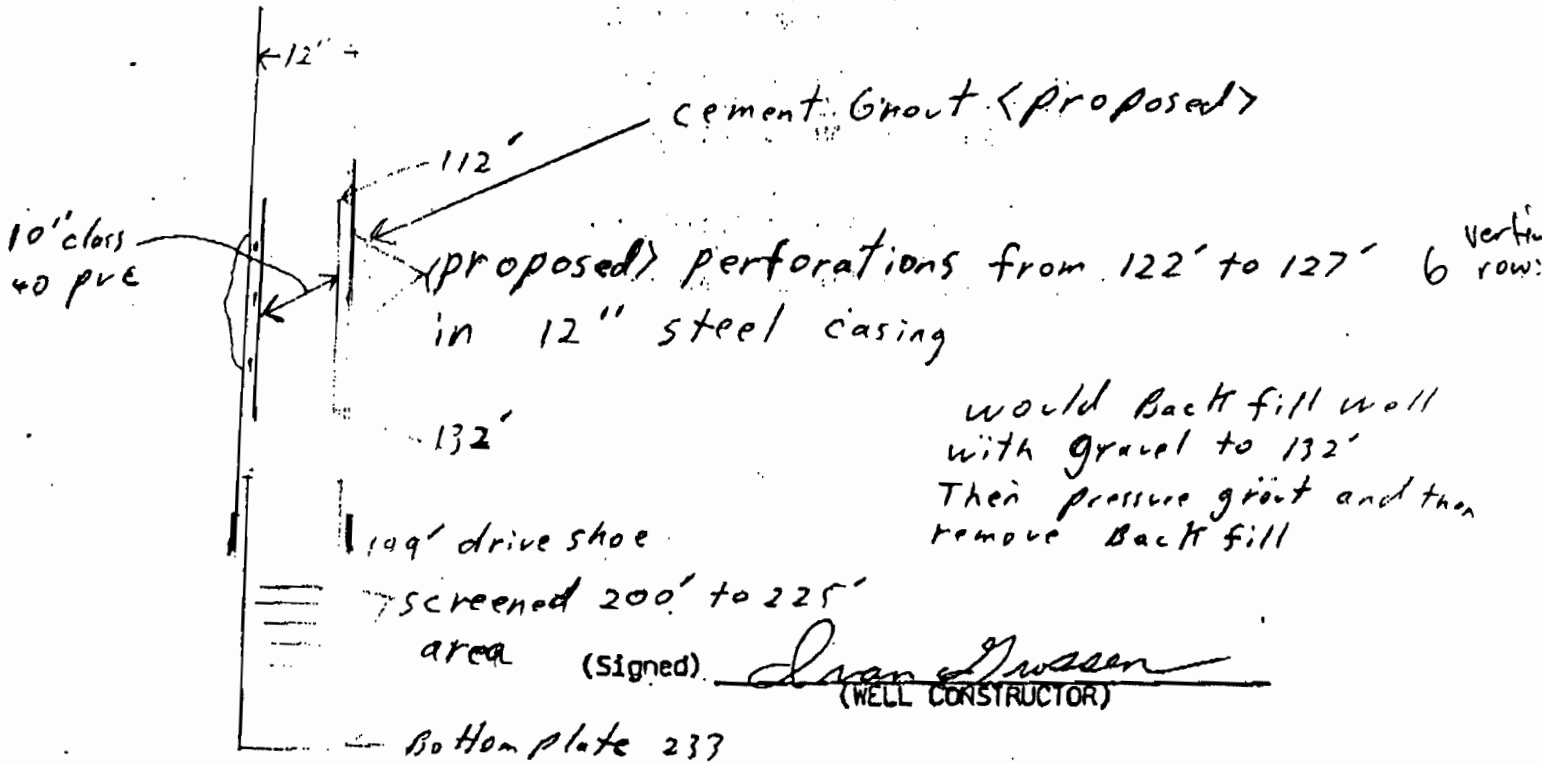 12"
cement Grout <proposed>
112'
10" class
40 pvc
<proposed> perforations from 122' to 127' 6
in 12" steel casing
would Back fill well
with gravel to 132'
Then pressure grout and then
remove Back fill
132'
199' drive shoe
screened 200' to 225'
area
(Signed) Ivan Grossen
(WELL CONSTRUCTOR)
Bottom plate 233